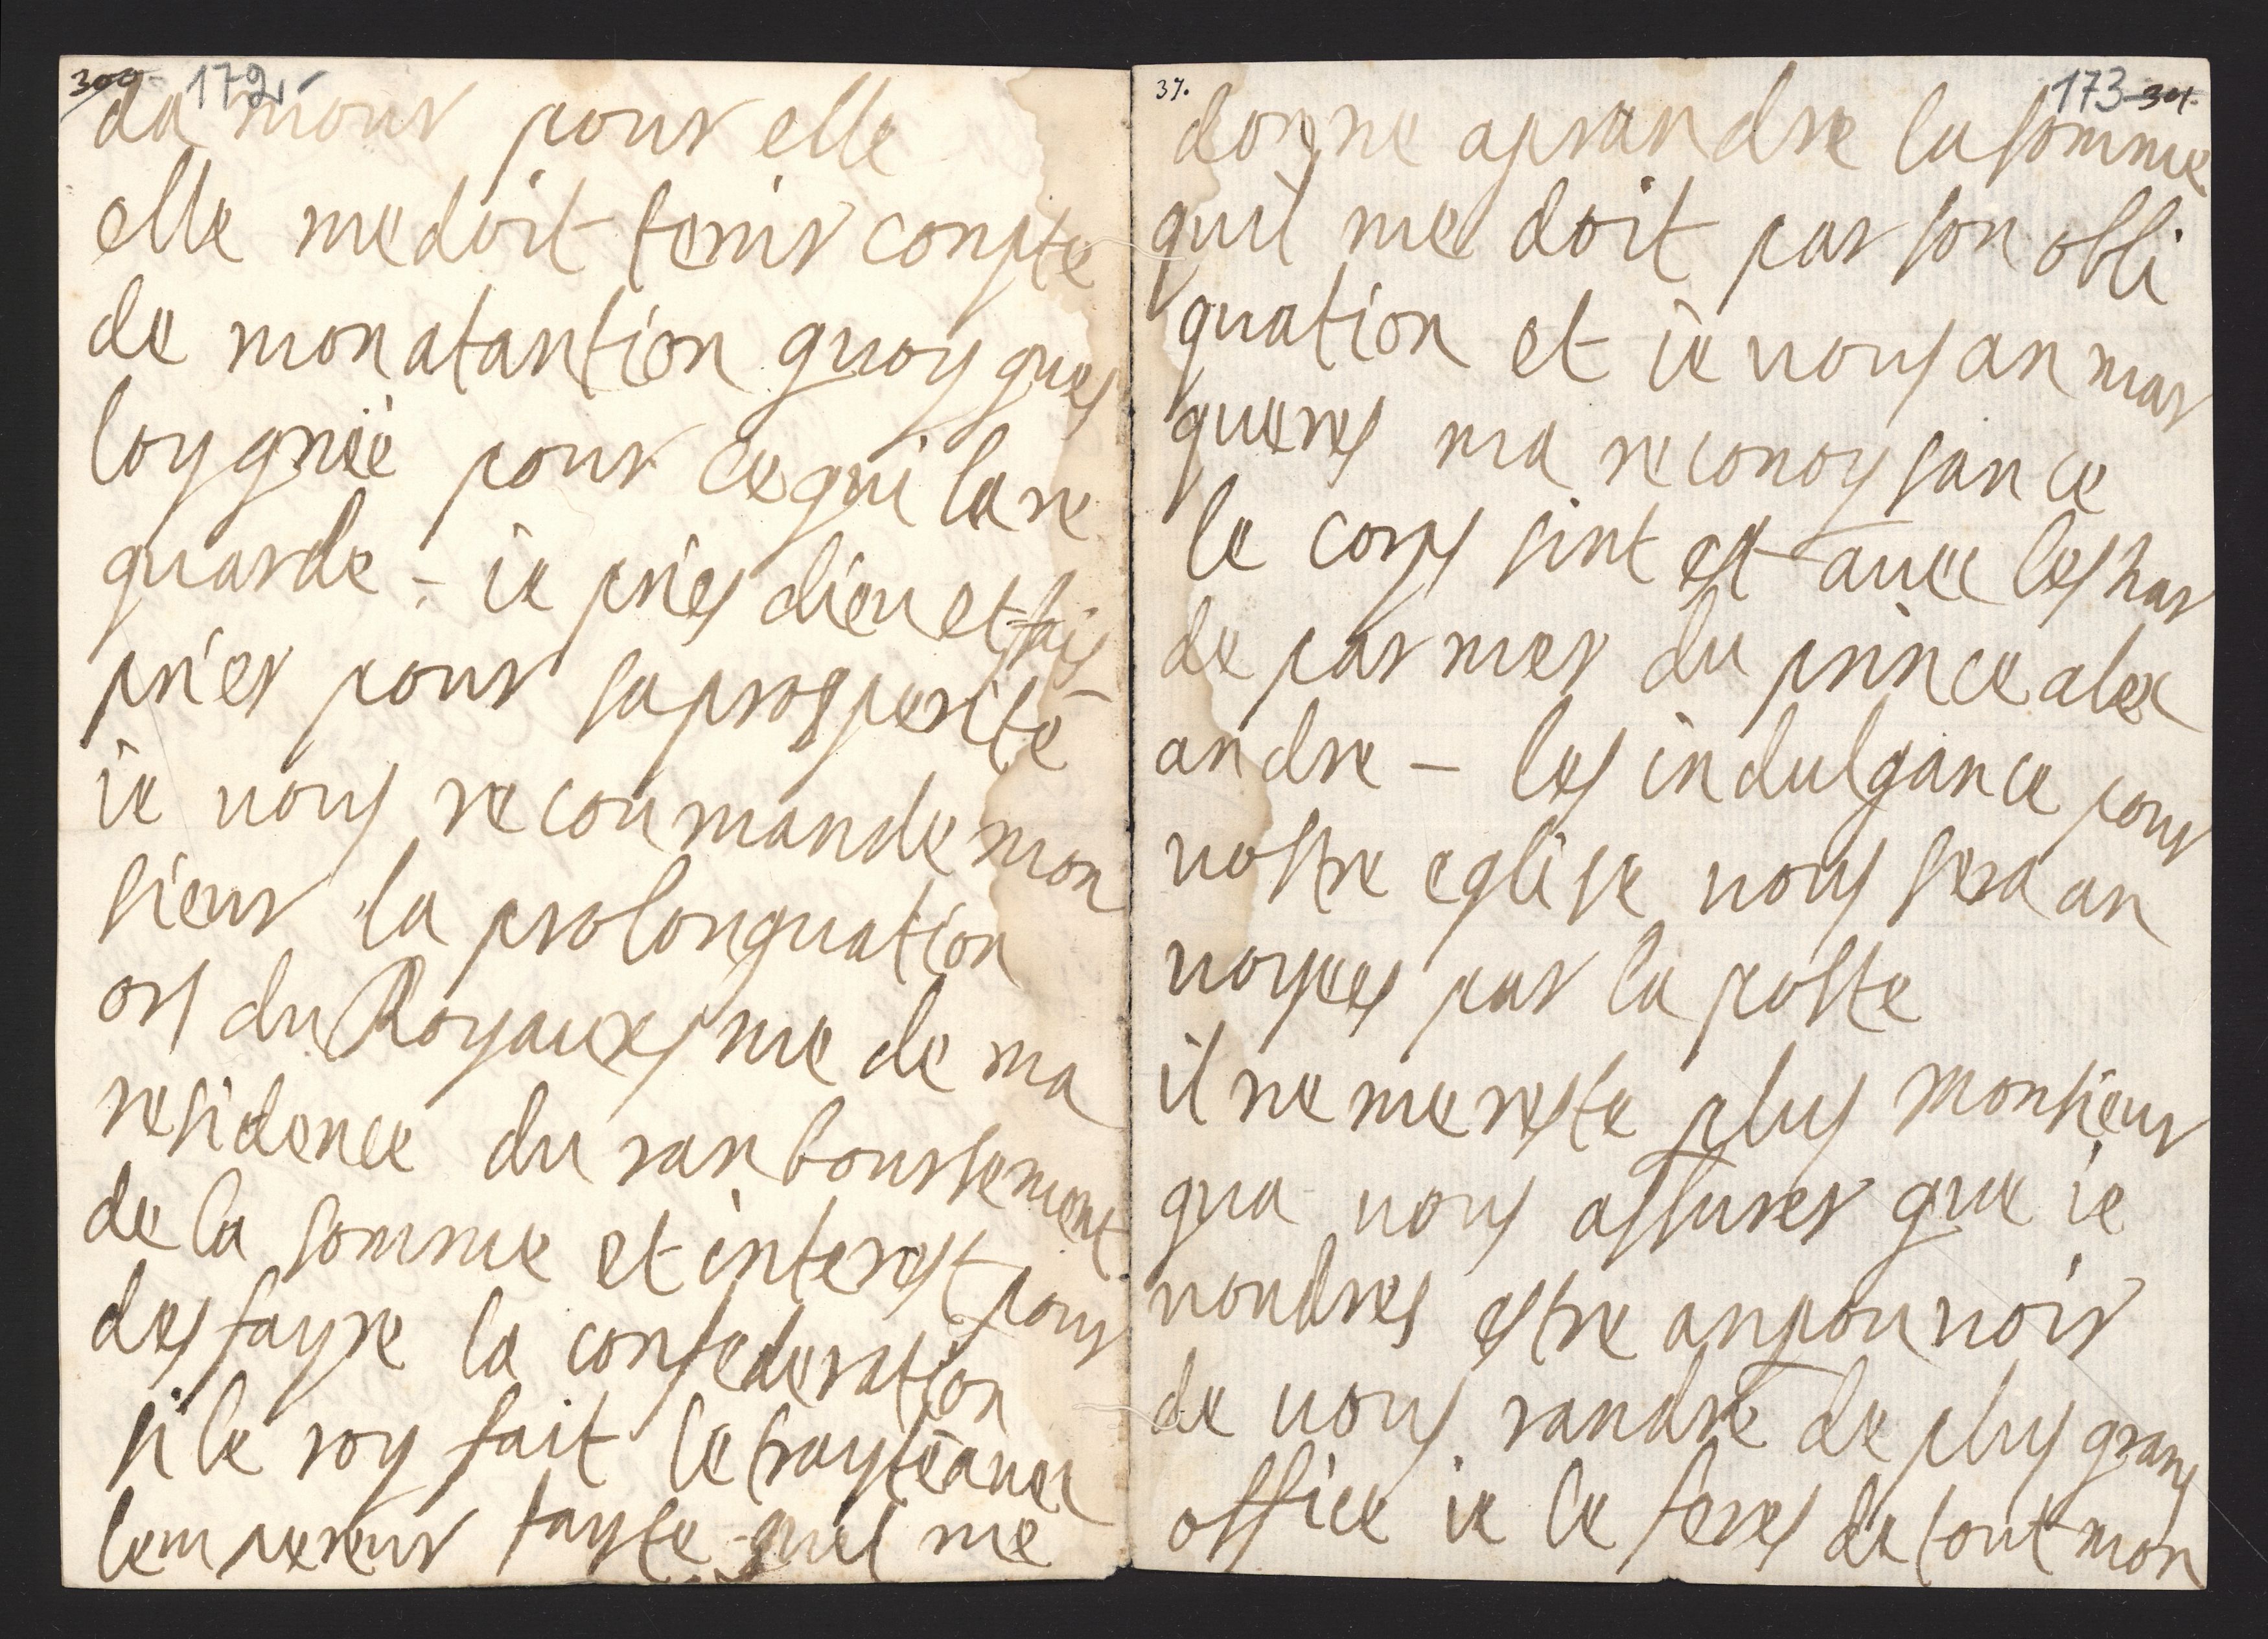 300 172
da mour pour elle
elle me doit tenir compte
de mon atantion quoy ques
loygnée pour ce qui la re
guarde - ie pries dieu et fais
prier pour sa prosperité
ie vous recoummande mon
sieur la prolonguation
ors du Royauxsme de ma
residence du ranboursement
de la somme et interest pour
desfayre la confederation
si le roy fait le trayté avec
lempereur fayte quil me
37. 173 301.
donne aprandre la somme
quil me doit par son obli
guation et ie vous an mar
queres ma reconoysance
le corps sint est avec les har
de par mer du prince alex
andre - les indulgance pour
vostre eglise vous sera an
voyees par la poste
il ne me reste plus monsieur
qua vous assurer que ie
voudres estre anpouvoir
de vous randre de plus grans
office ie le feres de tout mon